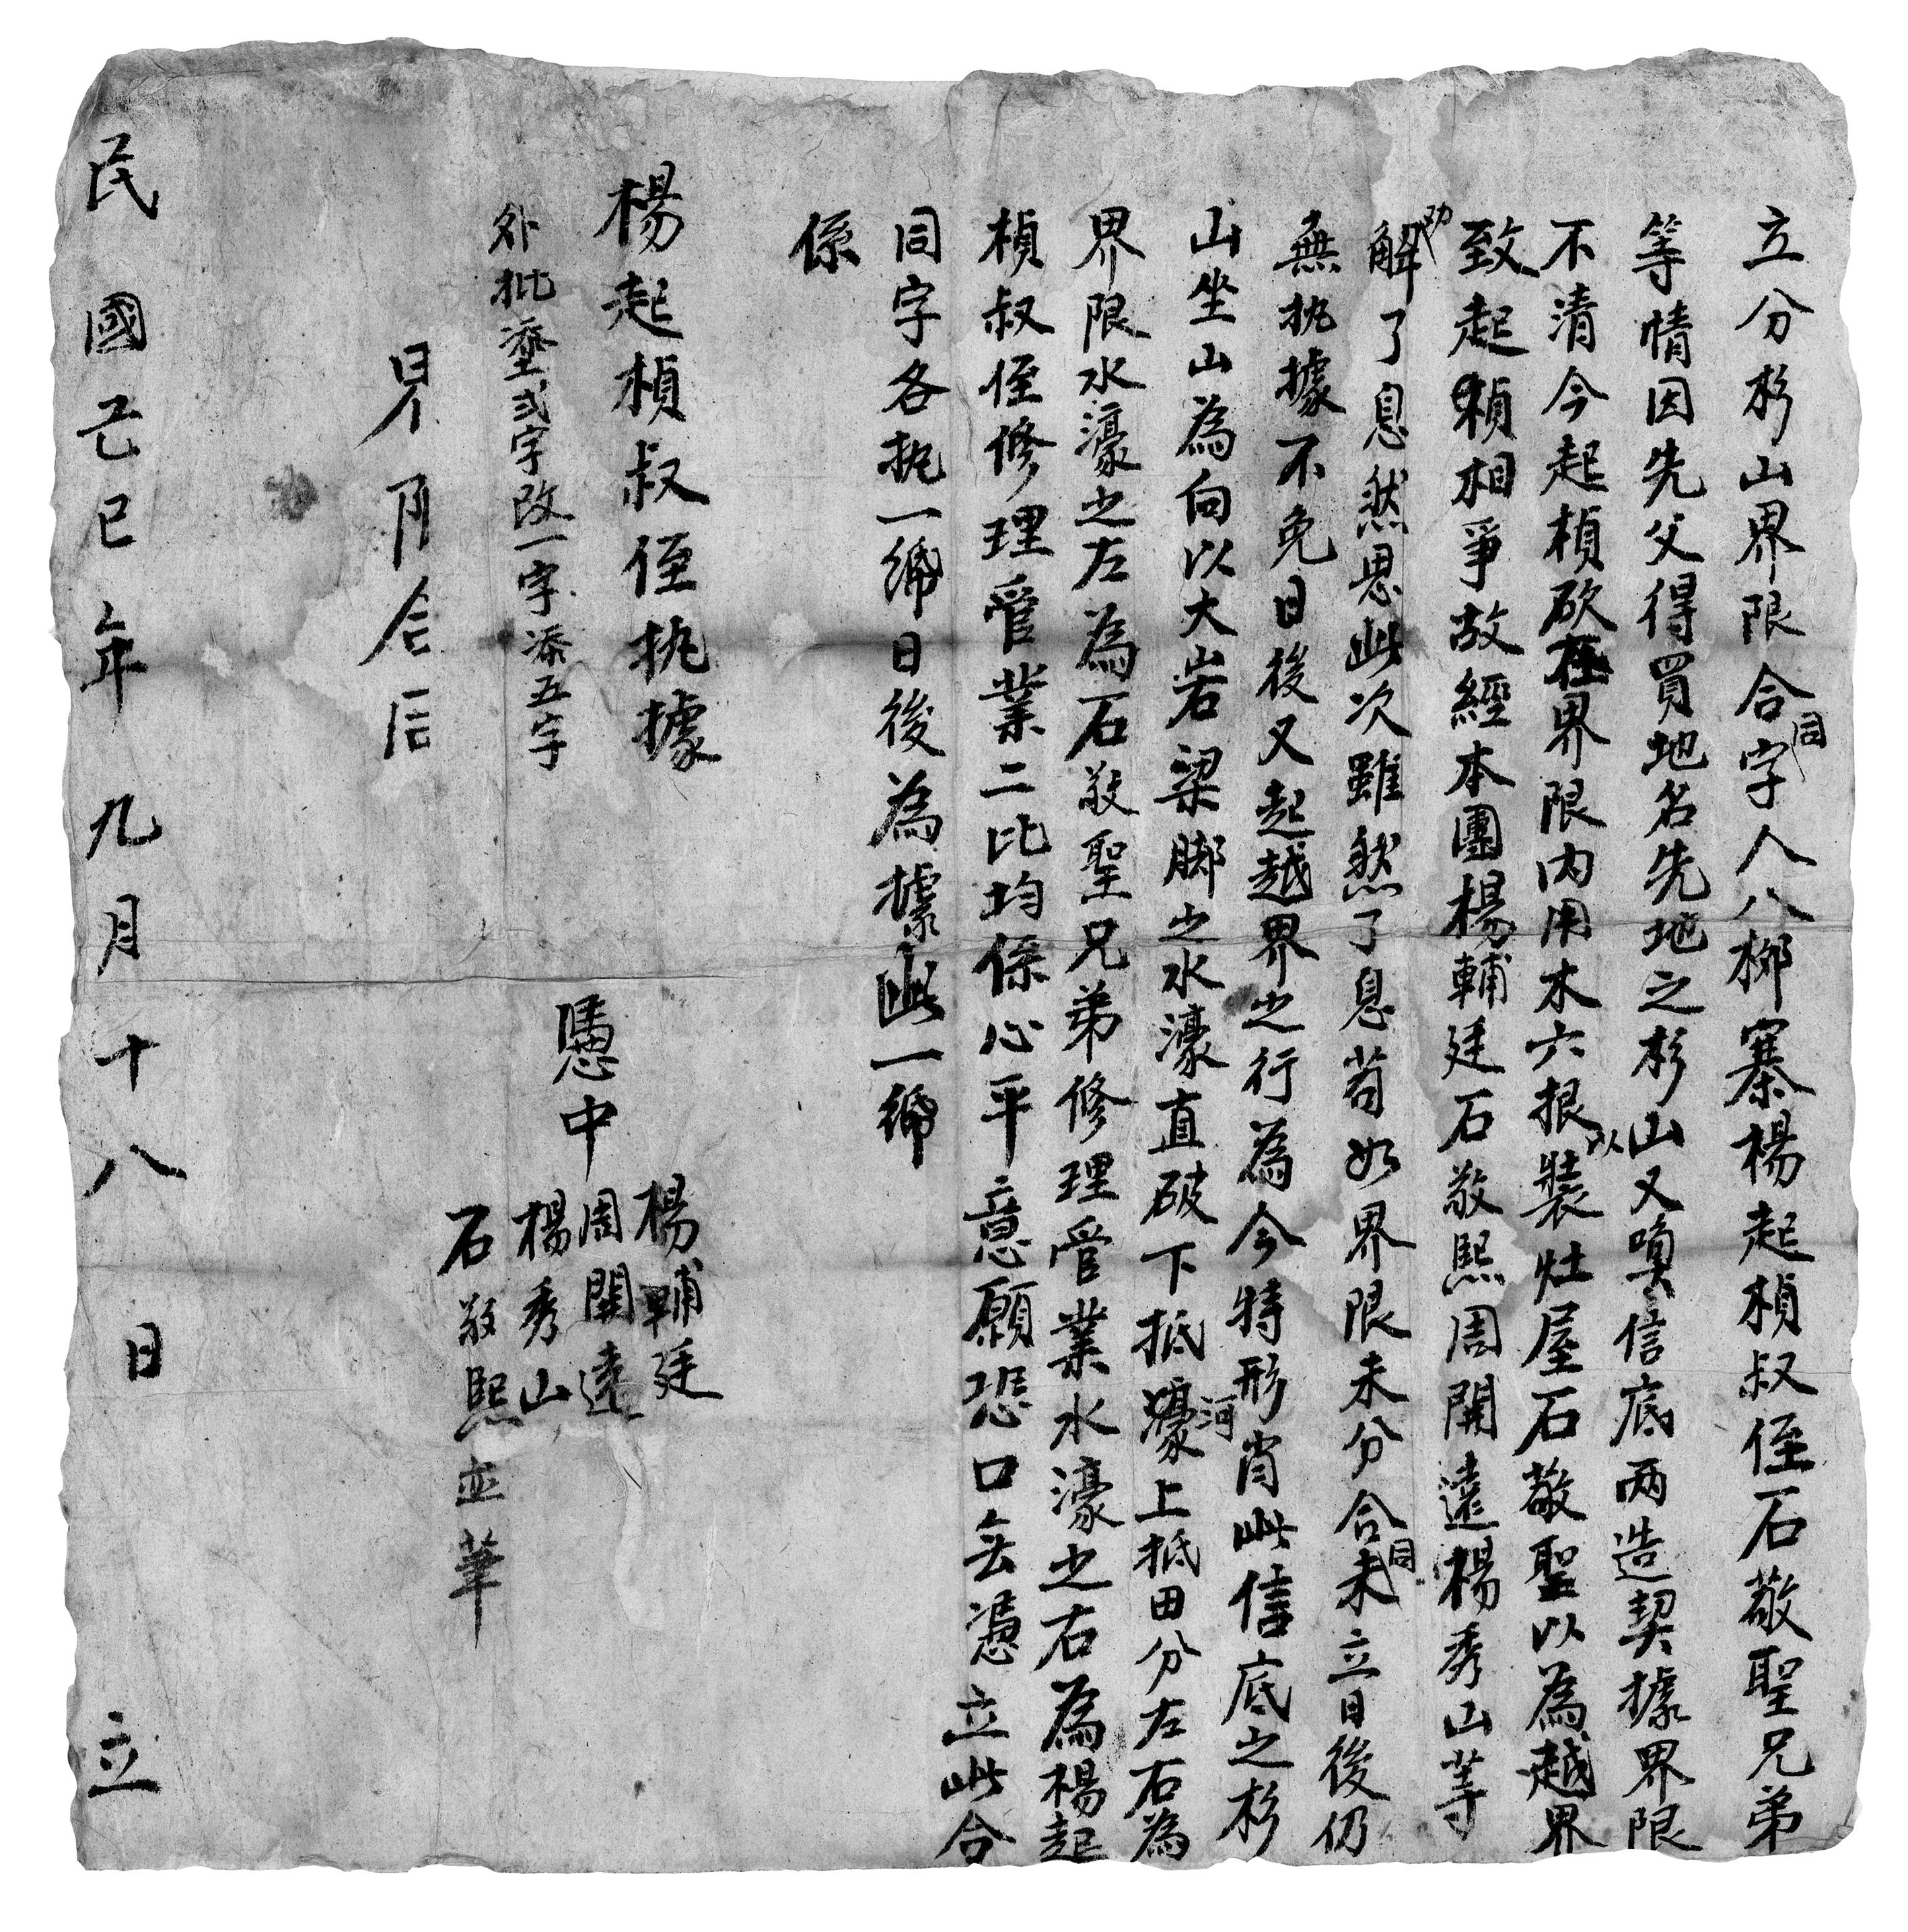 立分杉山界限合同字人八梛寨楊起楨叔侄石敬聖兄弟
等情因先父得買地名先地之杉山又喚信底两造契據界限
不清今起楨砍在界限内用木六根以裝灶屋石敬聖以為越界
致起楨相爭故經本團楊輔廷石敬熙周開遠楊秀山等
劝解了息然思此次雖然了息苟如界限未分合同未立日後仍
無执據不免日後又起越界之行為今特形肖此信底之杉
山坐山為向以大岩梁脚之水濠直破下抵濠河上抵田分左右為
界限水濠之左為石敬聖兄弟修理管業水濠之右為楊起
楨叔侄修理管業二比均係心平意願恐口无憑立此合
同字各执一紙日後為據此一紙
係
楊起楨叔侄执據
外批塗弍字改一字添五字
憑中
楊輔廷
周開遠
楊秀山
石敬熙並筆
民國己巳年九月十八日立